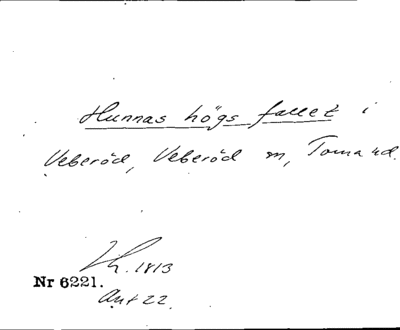 Hunnas högs fallet i
Veberöd, Veberöd sn, Torna hd.
1813
Nr 6221.
22.